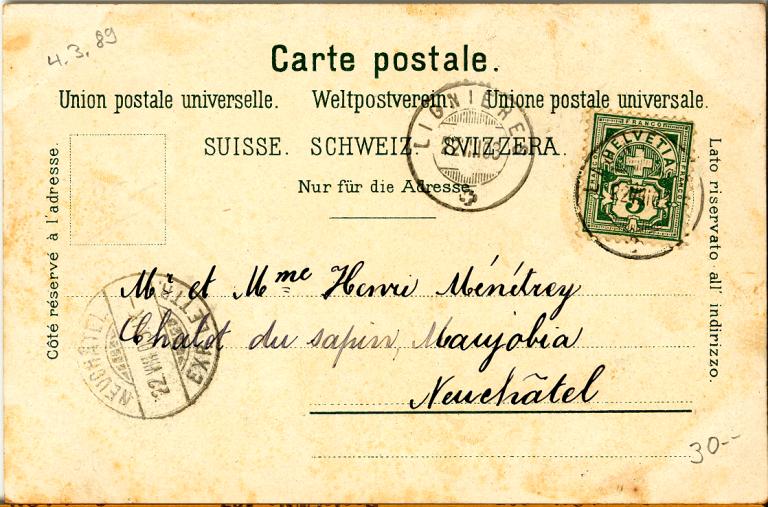 4.3.89
Carte postale.
Union postale universelle. Weltpostverein. Unione postale universale.
SUISSE. SCHWEIZ. SVIZZERA.
Nur für die Adresse.
Côté réservé à l'adresse.
Lato riservato all' indirizzo.
LIGNIERES
FRANCO
HELVETIA
FRANCO
FRANCO
5
Mr et Mme Henri Ménétrey
Chalet du sapin, Maujobia
Neuchâtel
NEUCHATEL
22 VIII
EXP. LETTR.
30--